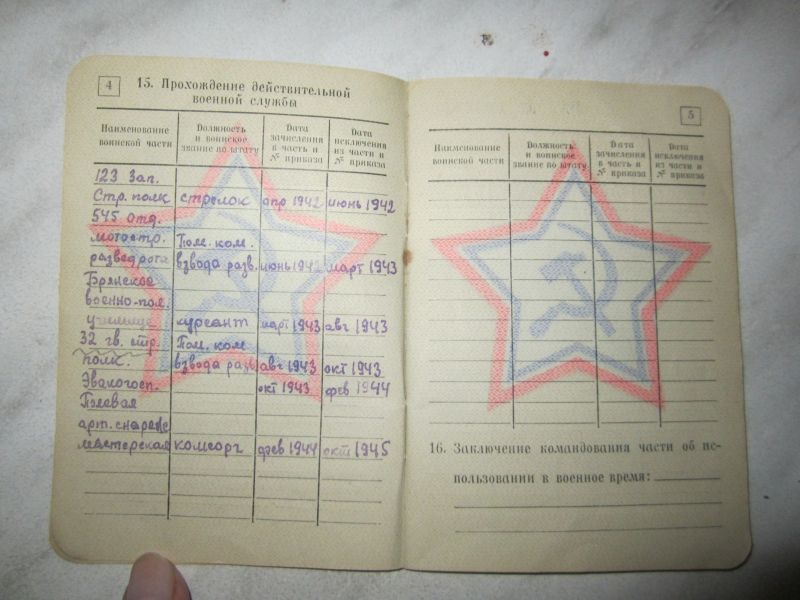 4
15. Прохождение действительной
военной службы
Наименование воинской части
Должность и воинское звание по штату
Дата зачисления в часть и № приказа
Дата исключения из части и № приказа
123 Зап.
Стр. полк стрелок апр 1942 июнь 1942
545 отд.
мотостр. Пом. ком.
разведрота взвода разв. июнь 1942 март 1943
Брянское
военно-пол.
училище курсант март 1943 авг 1943
32 гв. стр. Пом. ком
полк. взвода разв авг 1943 окт 1943
Эвакогосп. окт 1943 фев 1944
Полевая
арт. снаряж
мастерская комсорг фев 1944 окт 1945
5
Наименование воинской части
Должность и воинское звание по штату
Дата зачисления в часть и № приказа
Дата исключения из части и № приказа
16. Заключение командования части об ис-
пользовании в военное время: